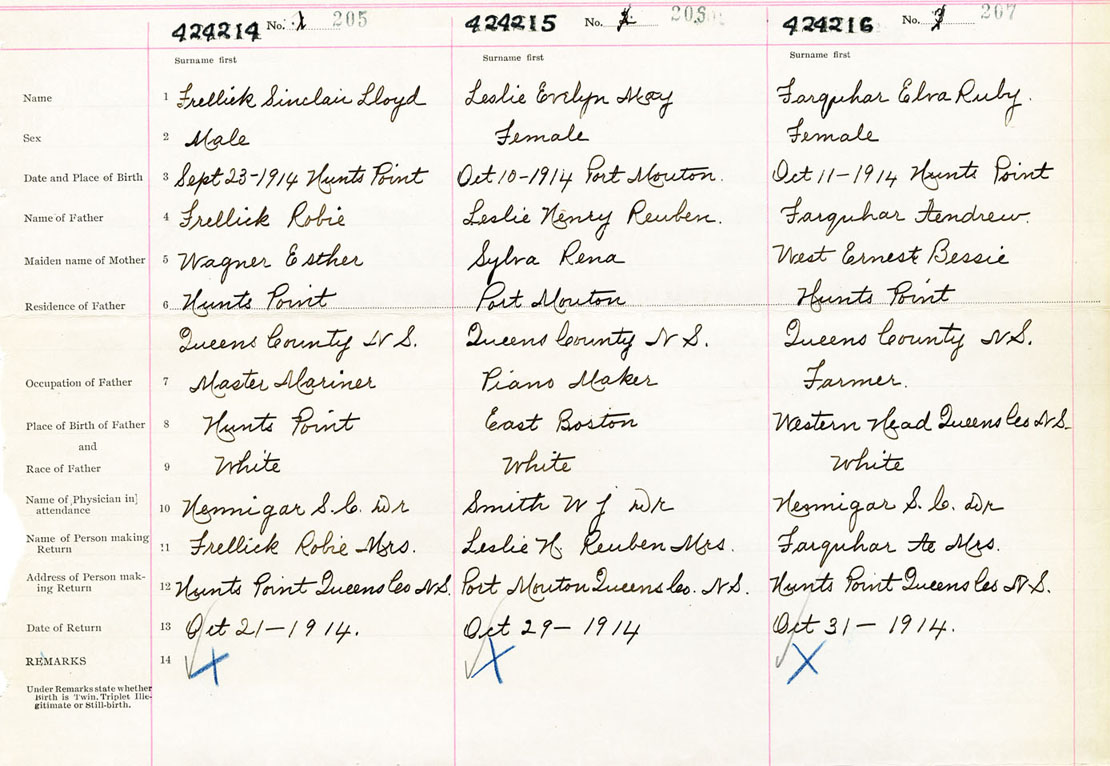 424214 No. 1 205 424215 No. 2 206 424216 No. 3 207
Surname first Surname first Surname first
Name 1 Frellick Sinclair Lloyd Leslie Evelyn May Farquhar Elva Ruby.
Sex 2 Male Female Female
Date and Place of Birth 3 Sept 23-1914 Hunts Point Oct 10-1914 Port Mouton. Oct 11-1914 Hunts Point
Name of Father 4 Frellick Robie Leslie Henry Reuben. Farquhar Aendrew.
Maiden name of Mother 5 Wagner Esther Sylva Rena West Ernest Bessie
Residence of Father 6 Hunts Point Port Mouton Hunts Point
Queens County N S. Queens County N S. Queens County N S.
Occupation of Father 7 Master Mariner Piano Maker Farmer.
Place of Birth of Father 8 Hunts Point East Boston Western Head Queens Co N S.
and
Race of Father 9 White White White
Name of Physician in]
attendance 10 Hennigar S. C. Dr Smith W J Dr Hennigar S. C. Dr
Name of Person making
Return 11 Frellick Robie Mrs. Leslie H. Reuben Mrs. Farquhar Ae Mrs.
Address of Person mak-
ing Return 12 Hunts Point Queens Co N S. Port Mouton Queens Co. N S. Hunts Point Queens Co N S.
Date of Return 13 Oct 21-1914. Oct 29-1914 Oct 31-1914.
REMARKS 14 X X X
Under Remarks state whether
Birth is Twin, Triplet Ille-
gitimate or Still-birth.